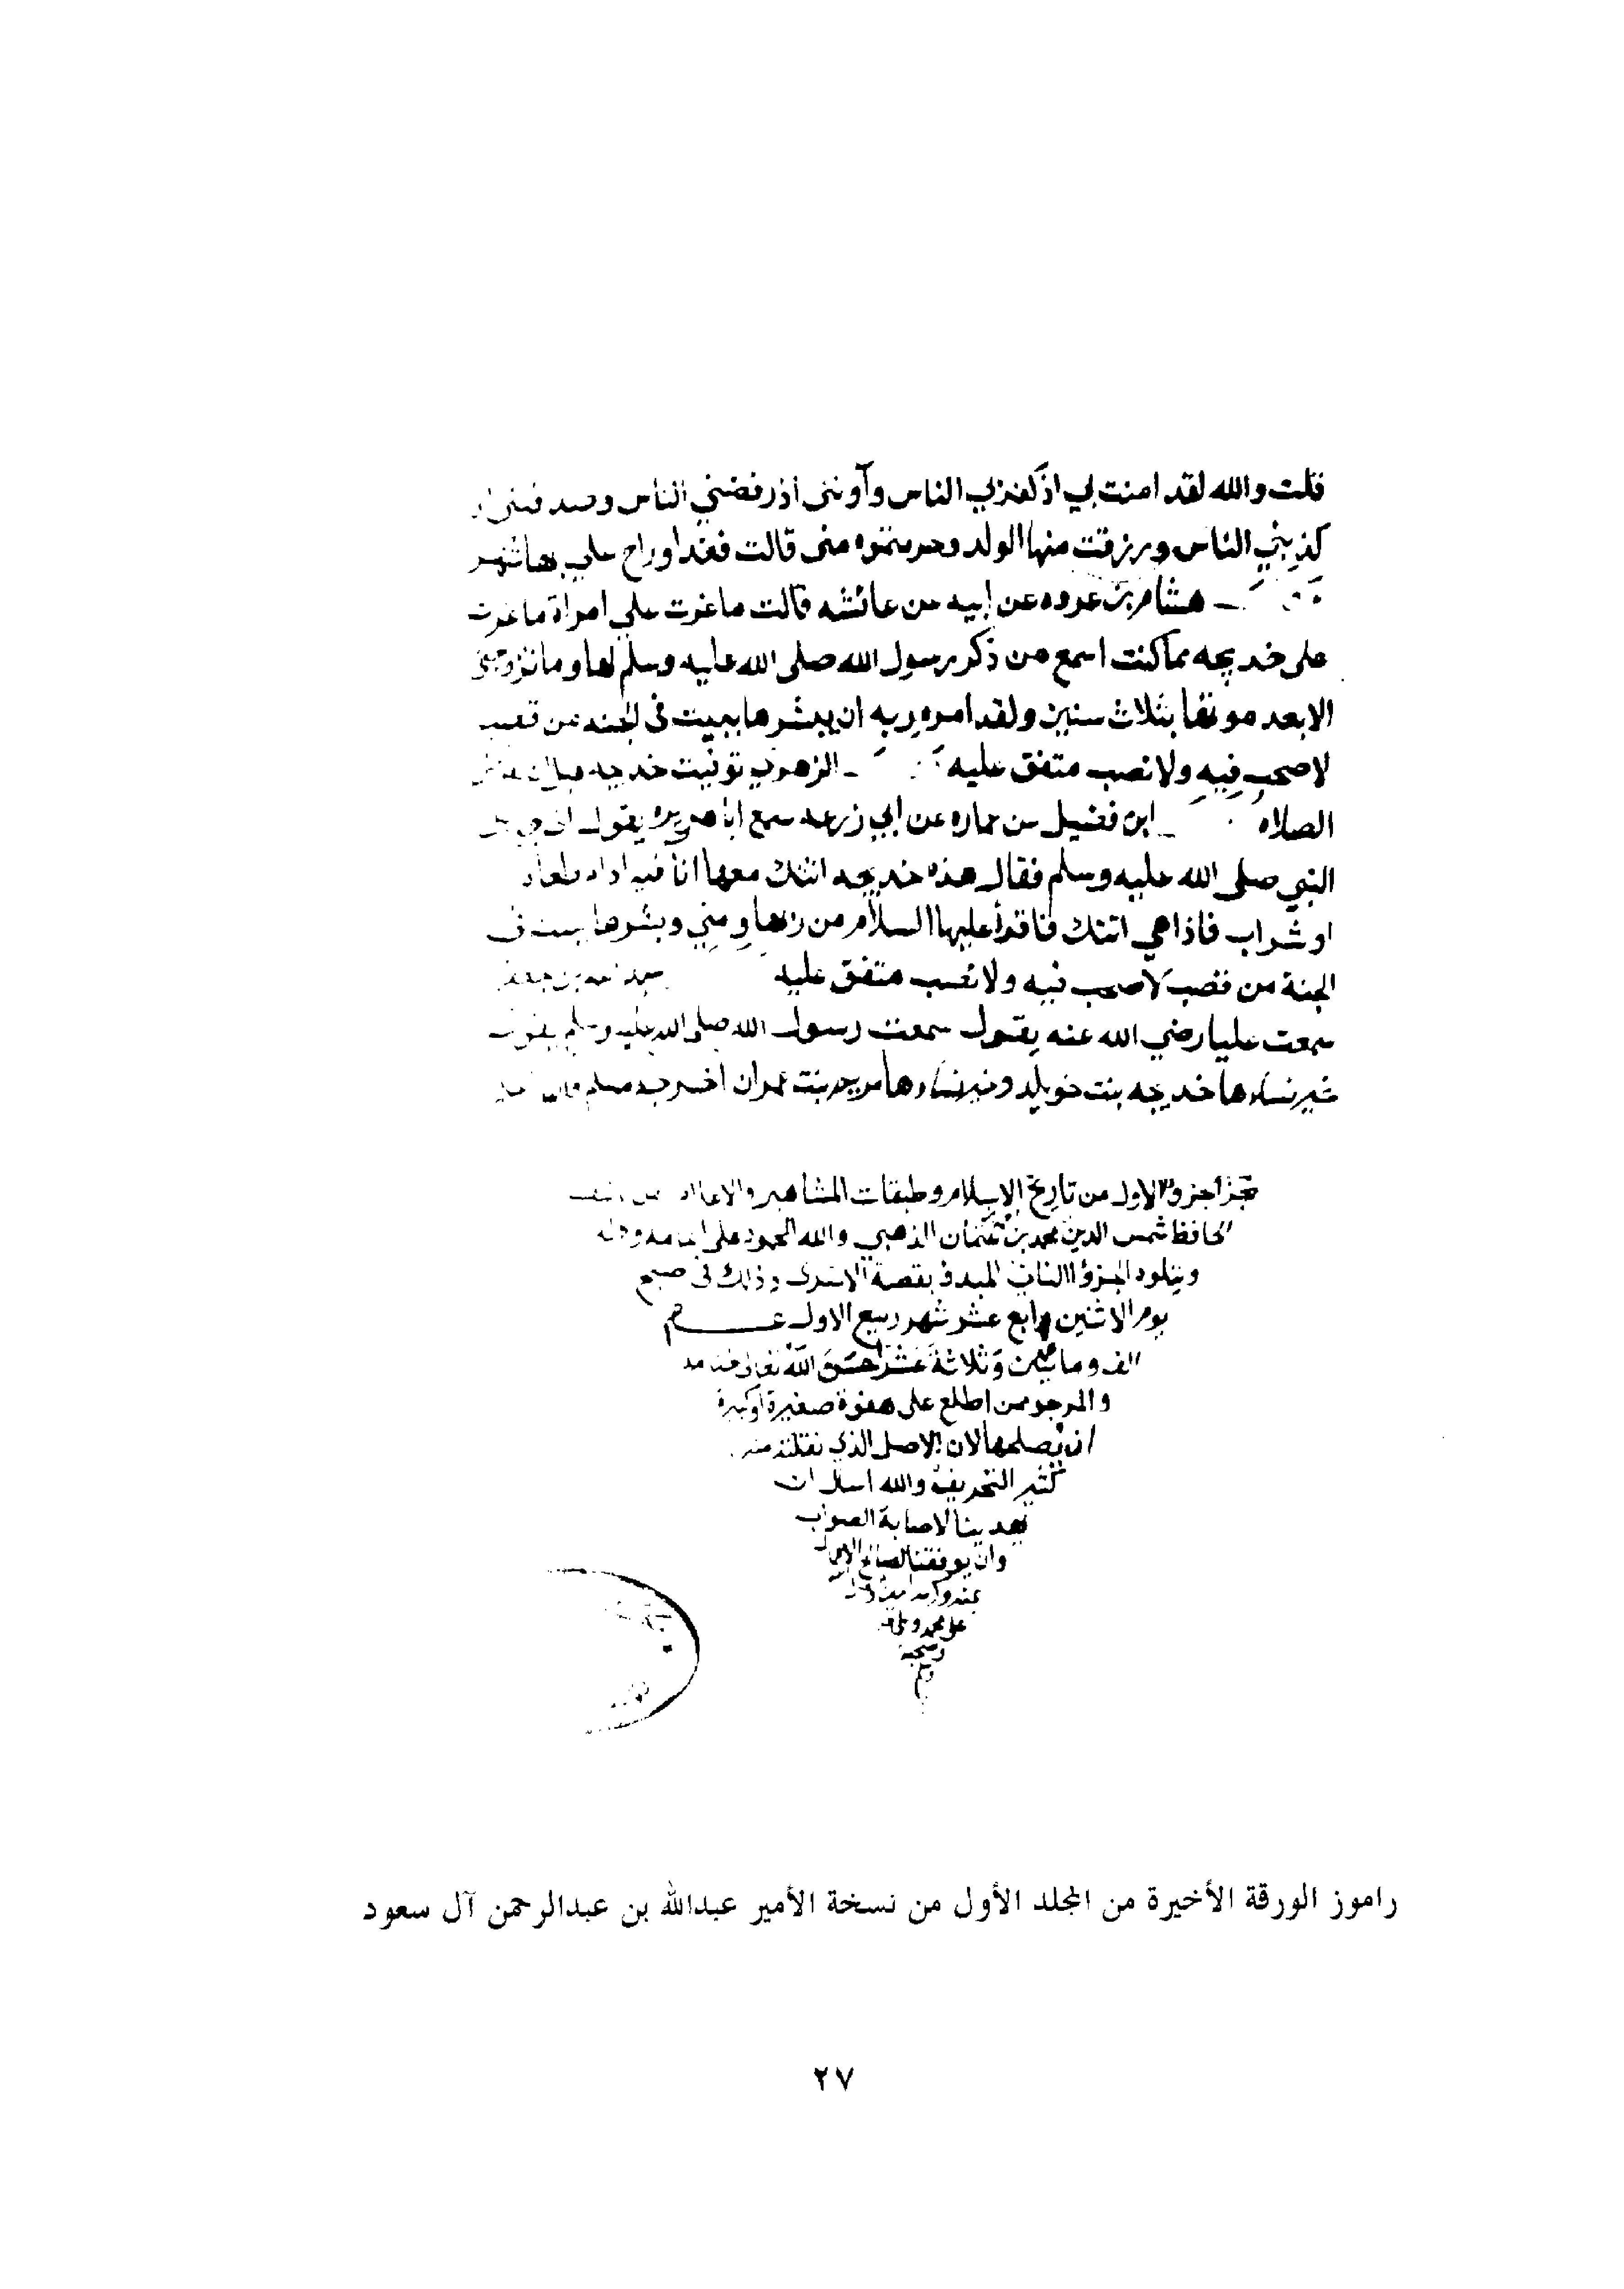 قلت والله لقد امنت بي اذ كفر بي الناس وآوتنى اذ رفضني الناس وصدقتنى اذ
كذبني الناس ورزقت منها الولد وحرمتموه منى قالت فغدا وراح علي بها شهر
هشام بن عروه عن ابيه عن عائشه قالت ما غرت علي امراة ما غرت
على خديجه مما كنت اسمع من ذكر رسول الله صلى الله عليه وسلم لها وما تزوجنى
الا بعد موتها بثلاث سنين ولقد امره ربه ان يبشرها ببيت فى الجنه من قصب
لا صخب فيه ولا نصب متفق عليه الزهري توفيت خديجه قبل ان
الصلاه ابن فضيل عن عماره عن ابي زرعه سمع ابا هريره يقول اتى جبريل
النبي صلى الله عليه وسلم فقال هذه خديجه اتتك معها انا فيه ادام طعام
او شراب فاذا هي اتتك فاقرأ عليها السلام من ربها ومني وبشرها ببيت فى
الجنة من قصب لا صخب فيه ولا نصب متفق عليه عبد الله بن جعفر
سمعت عليا رضي الله عنه يقول سمعت رسول الله صلى الله عليه وسلم يقول
خير نساءها خديجه بنت خويلد وخير نساءها مريم بنت عمران اخرجه مسلم
الجزؤ الاول من تاريخ الاسلام وطبقات المشاهير والاعلام
الحافظ شمس الدين محمد بن عثمان الذهبي والله المحمود على
ويتلوه الجزؤ الثاني المبدؤ بقصة الاسرى وذلك فى صبح
يوم الاثنين رابع عشر شهر ربيع الاول عام
الف ومايتين وثلاثة عشر احسن الله تعالى
والمرجو ممن اطلع على هفوة صغيرة اوكبيرة
ان يصلحها لان الاصل الذي نقلته منه
كثير التحريف والله اسال ان
يهدينا لاصابة الصواب
وان يوفقنا لصالح
بمنه وكرمه
على محمد وعلى
وصحبه
وسلم
راموز الورقة الأخيرة من المجلد الأول من نسخة الأمير عبدالله بن عبدالرحمن آل سعود
٢٧